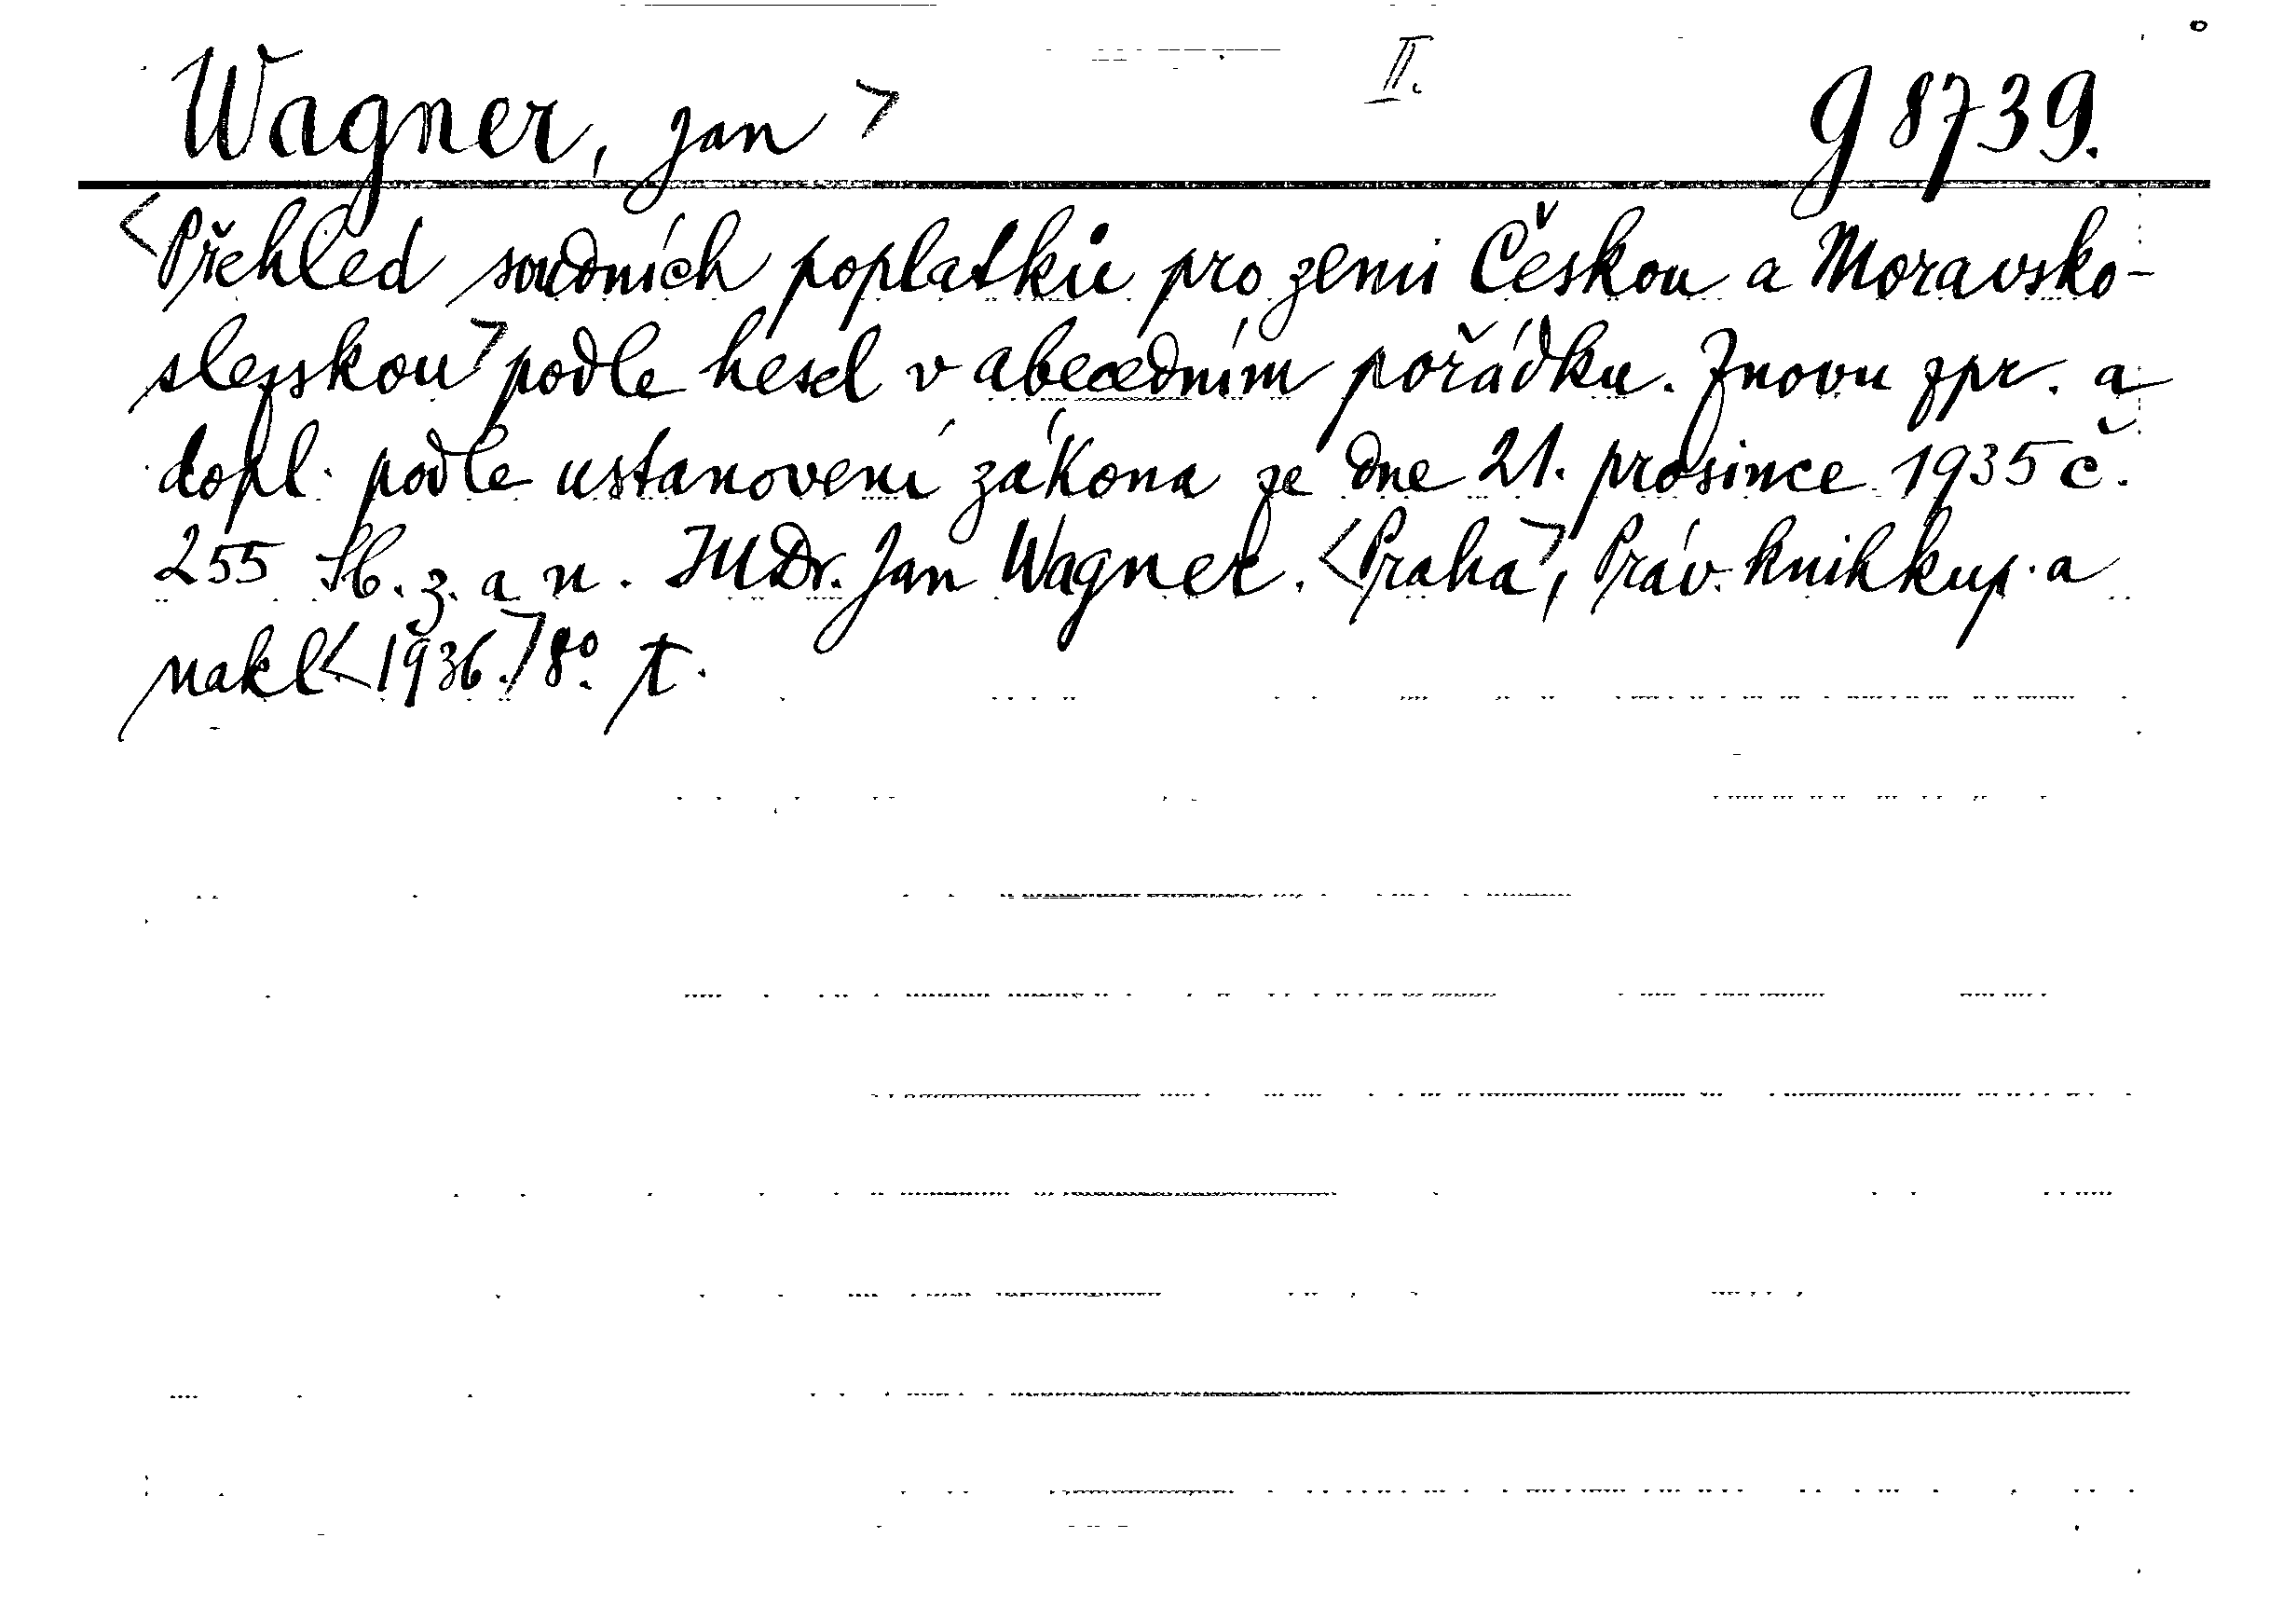 Wagner, Jan > II. g 8739.
<Přehled soudních poplatků pro zemi Českou a Moravsko-
slezskou> podle hesel v abecedním pořádku. Znovu zpr. a
dopl. podle ustanovení zákona ze dne 21. prosince 1935 č.
255 Sb. z. a n. JUDr. Jan Wagner. <Praha>, Práv. knihkup. a
nakl <1936.> 8º. t.